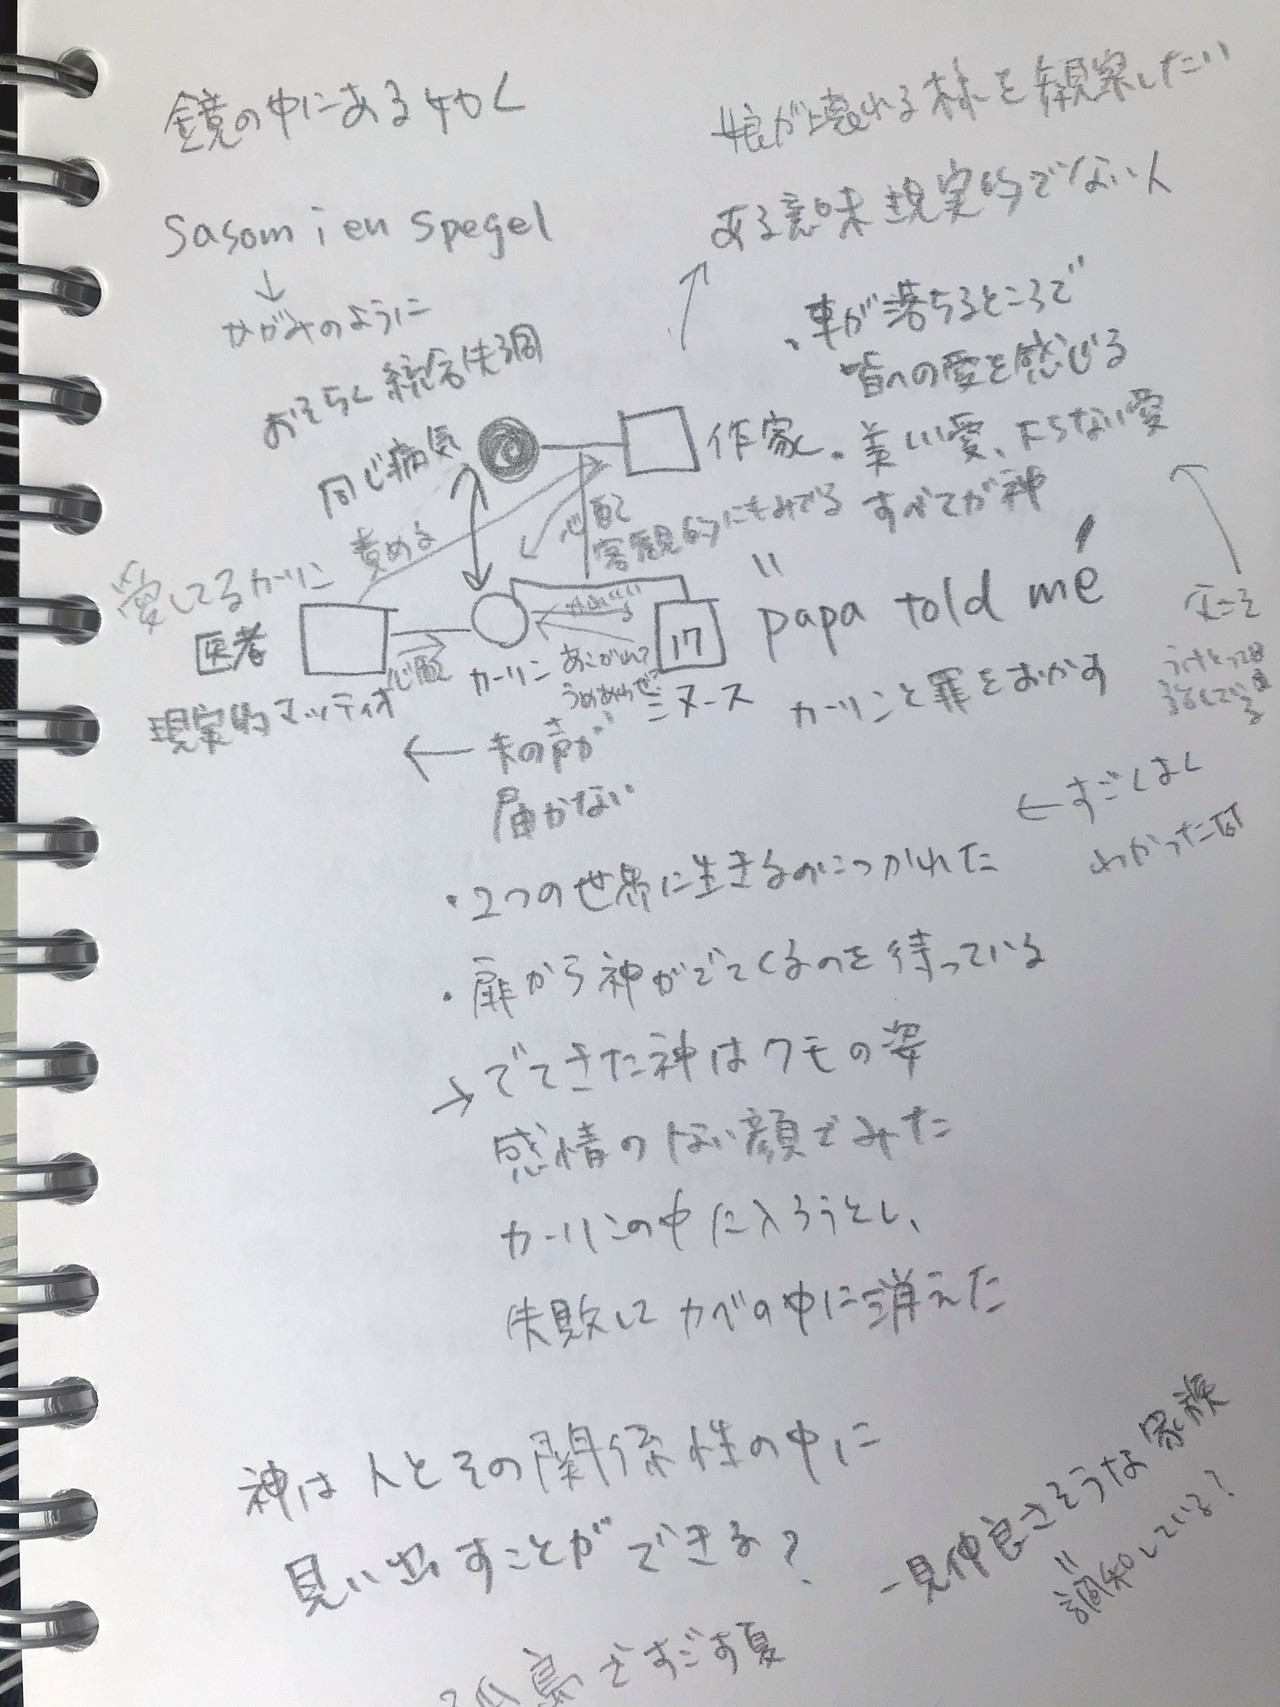 鏡の中にある如く
Såsom i en spegel
↓
かがみのように
おそらく統合失調
同じ病気
娘が壊れる様を観察したい
ある意味現実的でない人
・車が落ちるところで
皆への愛を感じる
作家
・美しい愛、下らない愛
すべてが神
責める
心配
客観的にもみてる
愛してるカーリン
医者
現実的マッティオ
心配
カーリン
あこがれて
17
ミヌース
"papa told me"
カーリンと罪をおかす
←夫の声が
届かない
←すごしはく
わかった
・2つの世界に生きるのにつかれた
・扉から神がでてくるのを待っている
→でてきた神はクモの姿
感情のない顔でみた
カーリンの中に入ろうとし、
失敗してカベの中に消えた
神は人とその関係性の中に
見い出すことができる?
一見仲良さそうな家族
調和している?
孤島ですごす夏